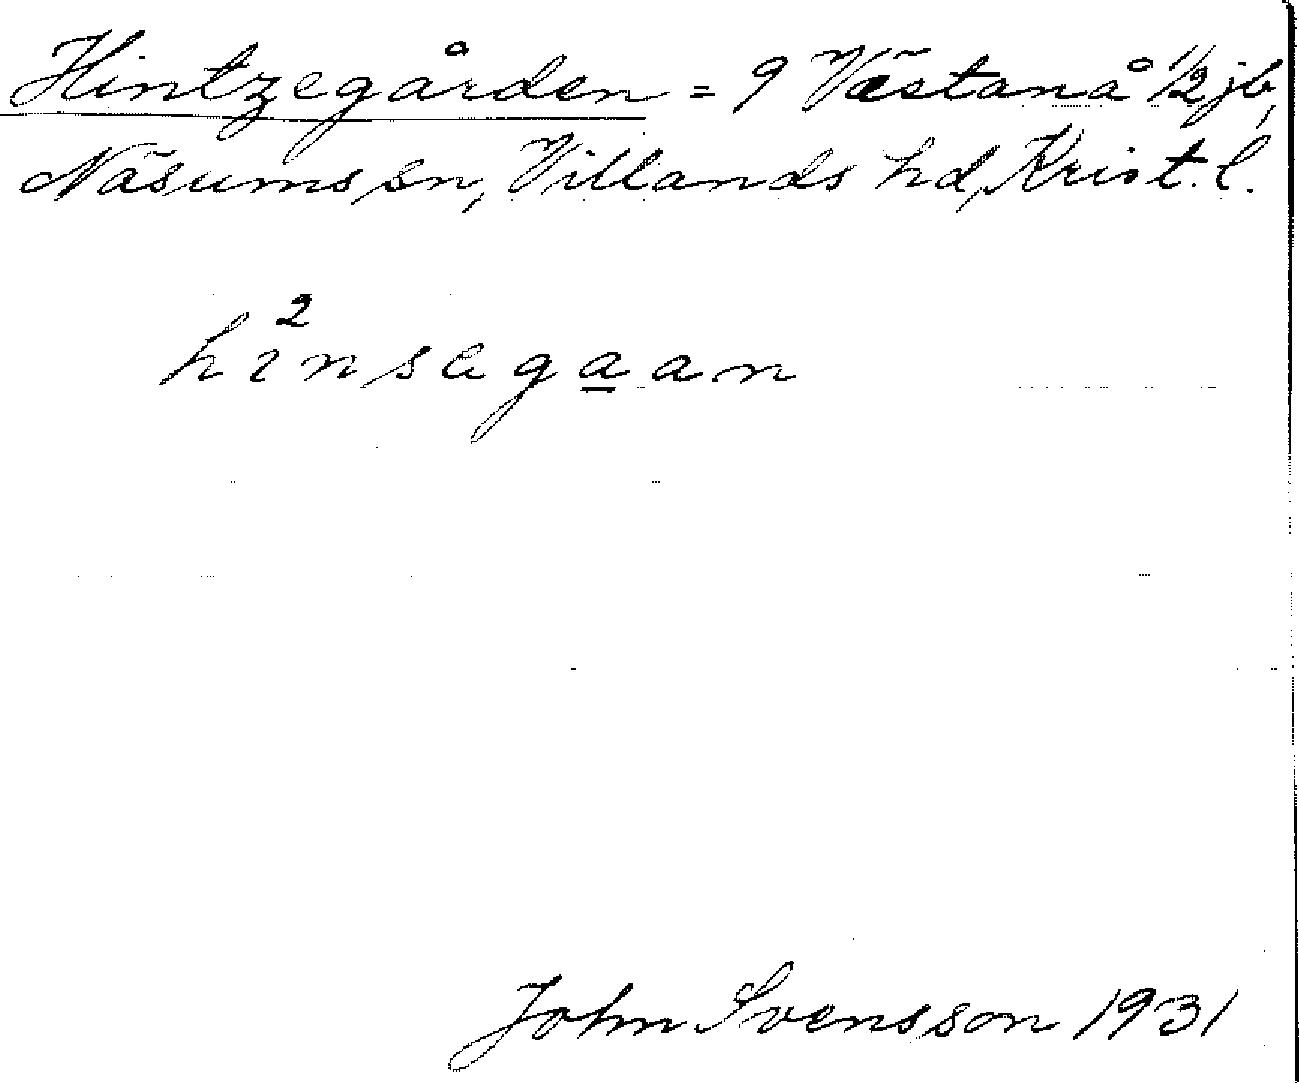 Hintzegården = 9 Västanå 1/2 jb,
Näsums sn, Villands hd, Krist. l.
2
hinsegaan
John Svensson 1931